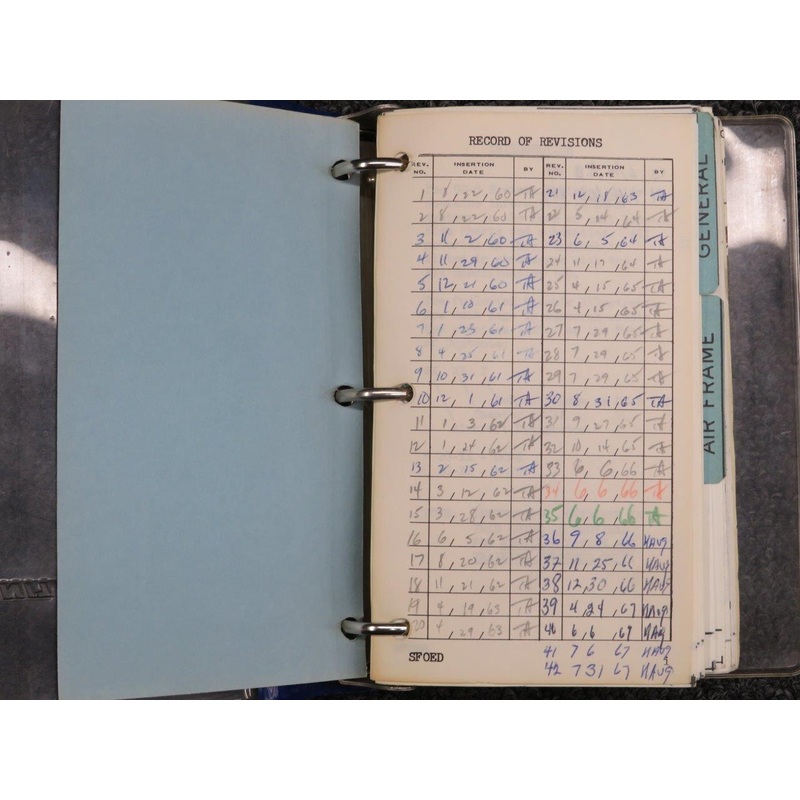 RECORD OF REVISIONS
REV. NO. INSERTION DATE BY REV. NO. INSERTION DATE BY
1 8, 22, 60 TA 21 12, 18, 63 TA
2 8, 22, 60 TA 22 5, 14, 64 TA
3 11, 2, 60 TA 23 6, 5, 64 TA
4 11, 29, 60 TA 24 11, 17, 64 TA
5 12, 21, 60 TA 25 4, 15, 65 TA
6 1, 10, 61 TA 26 4, 15, 65 TA
7 1, 25, 61 TA 27 7, 29, 65 TA
8 4, 25, 61 TA 28 7, 29, 65 TA
9 10, 31, 61 TA 29 7, 29, 65 TA
10 12, 1, 61 TA 30 8, 31, 65 TA
11 1, 3, 62 TA 31 9, 27, 65 TA
12 1, 24, 62 TA 32 10, 14, 65 TA
13 2, 15, 62 TA 33 6, 6, 66 TA
14 3, 12, 62 TA 34 6, 6, 66 TA
15 3, 28, 62 TA 35 6, 6, 66 TA
16 6, 5, 62 TA 36 9, 8, 66
17 8, 20, 62 TA 37 11, 25, 66
18 11, 21, 62 TA 38 12, 30, 66
19 4, 19, 63 TA 39 4, 24, 67
20 4, 29, 63 TA 40 6, 6, 67
41 7 6 67
SFOED 42 7 31 67
GENERAL
AIR FRAME